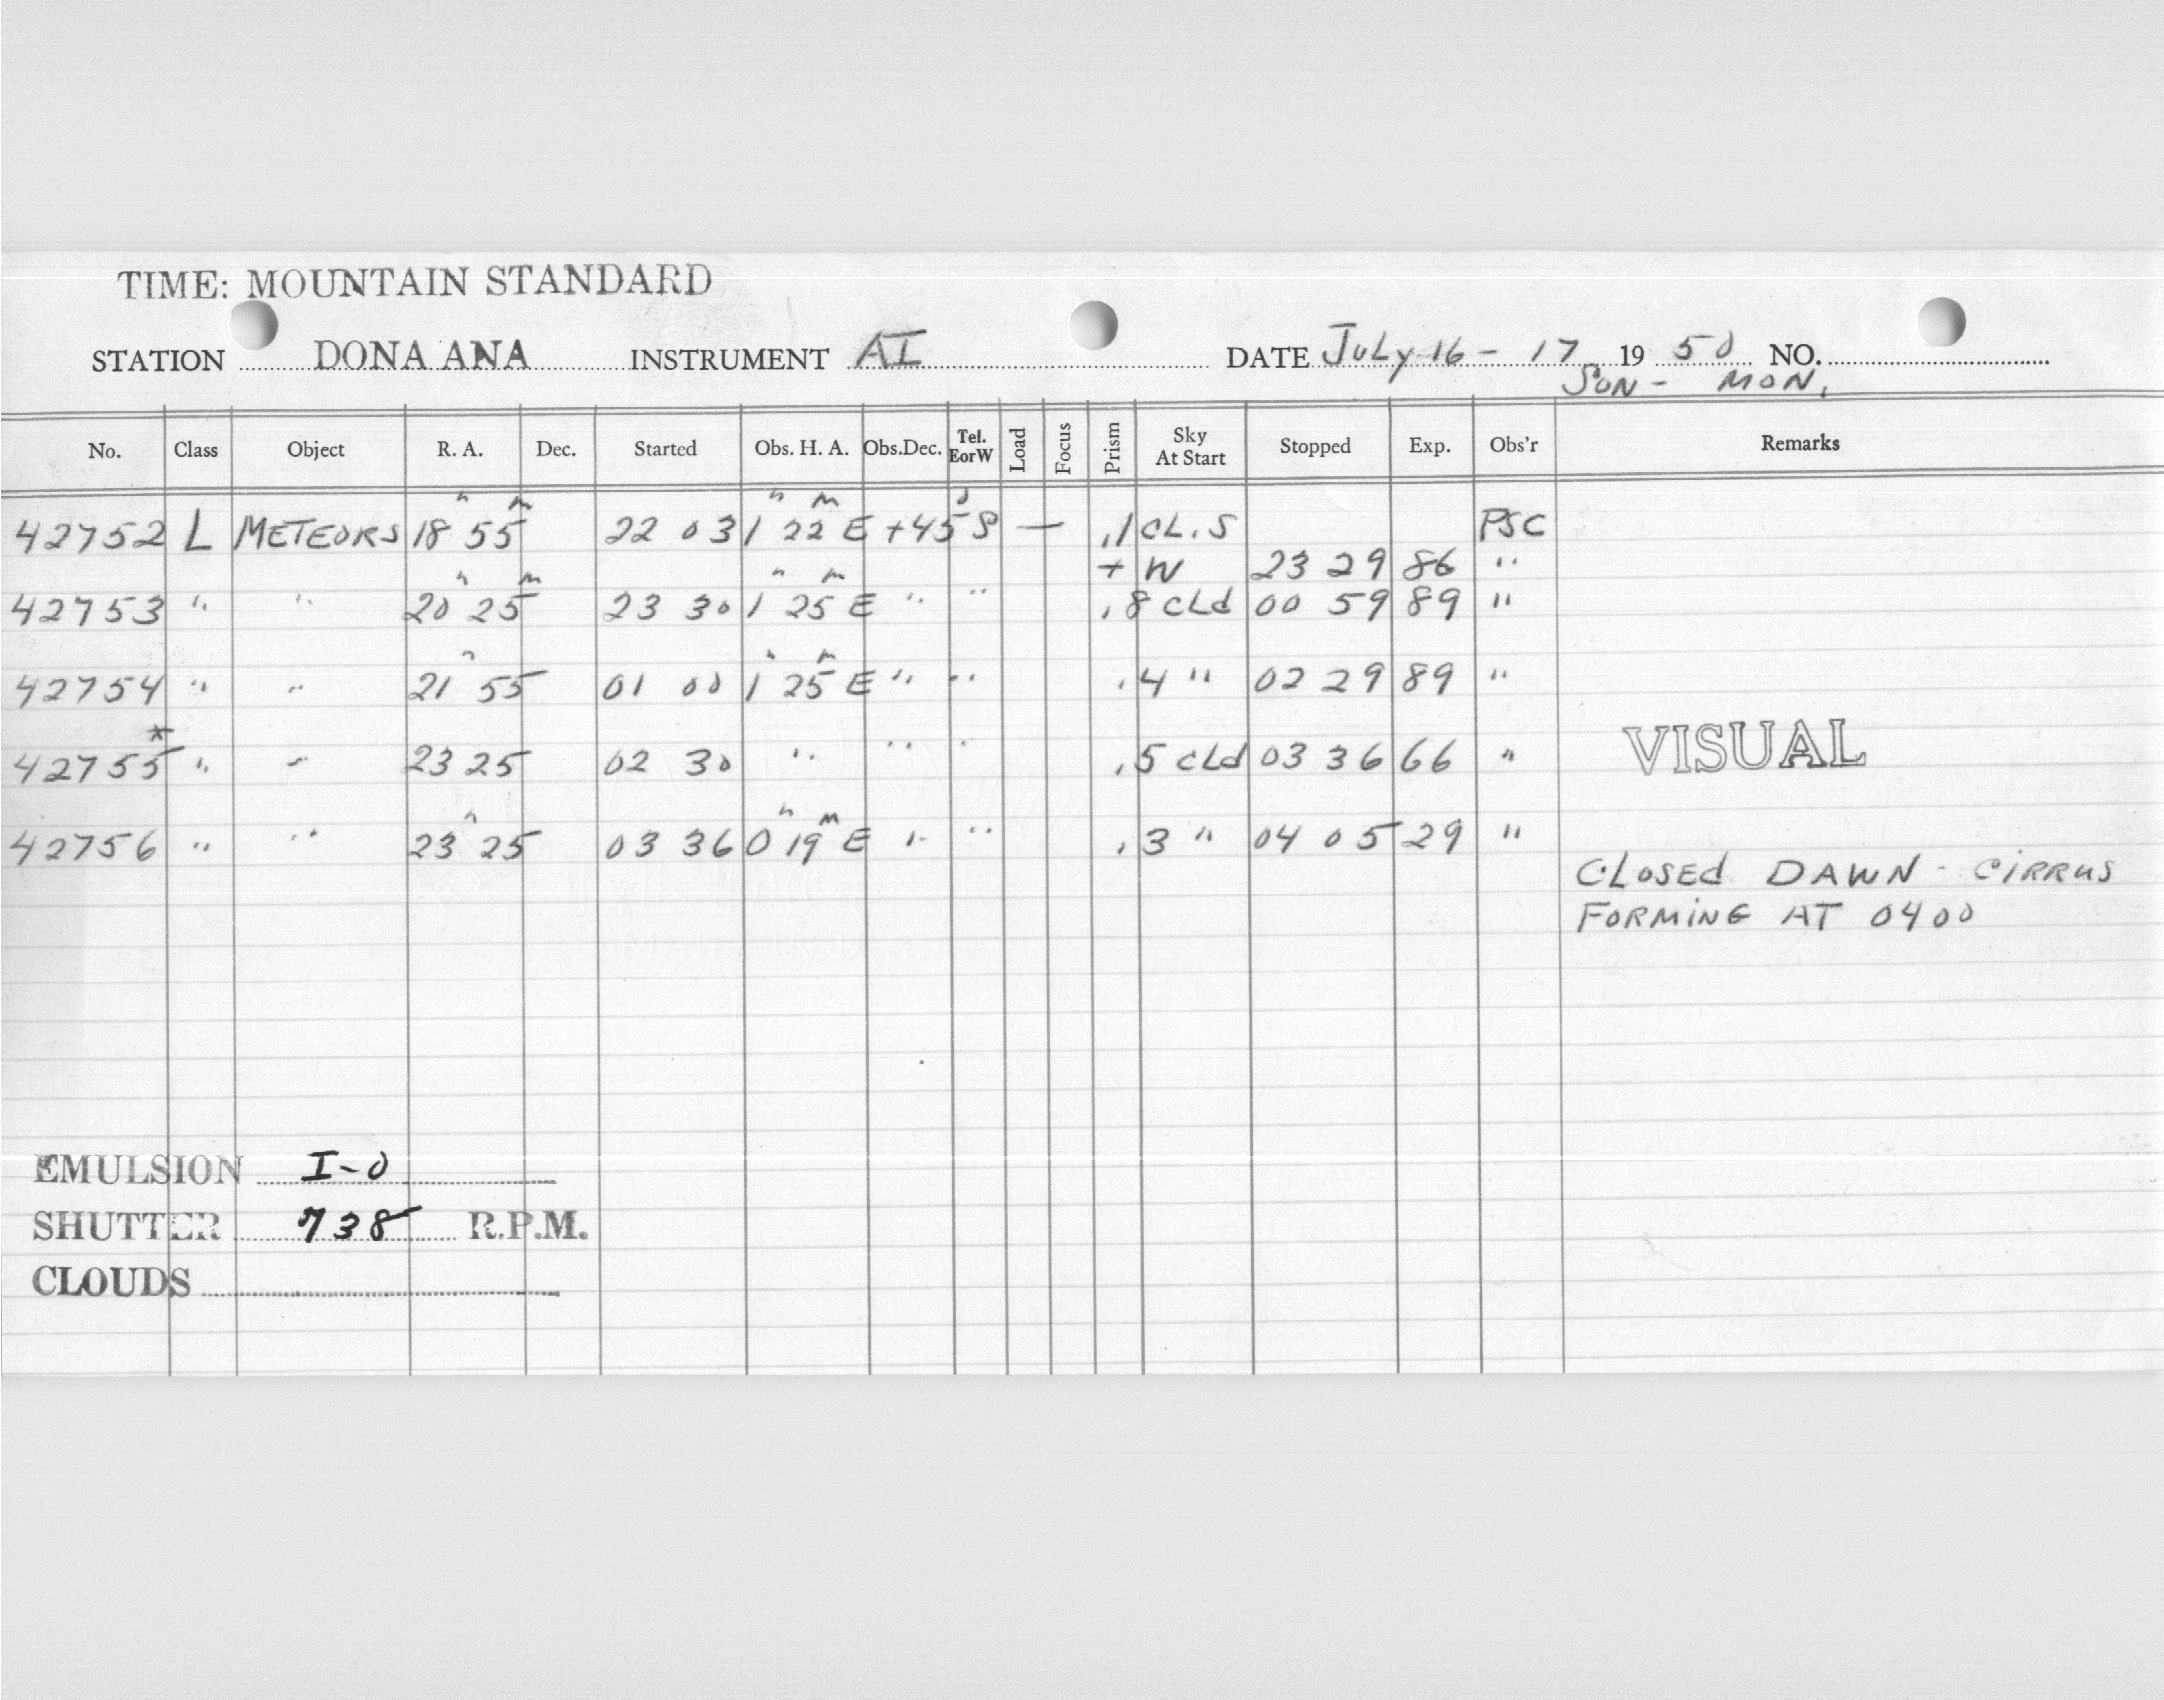 TIME: MOUNTAIN STANDARD
STATION DONA ANA INSTRUMENT AI DATE July 16 - 17 19 50 NO.
SUN - MON.
No. Class Object R. A. Dec. Started Obs. H. A. Obs.Dec. Tel. EorW Load Focus Prism Sky At Start Stopped Exp. Obs'r Remarks
h m h m o
42752 L METEORS 18 55 22 03 1 22 E +45 S — .1 CL. S PSC
+ W 23 29 86 "
h m h m
42753 " " 20 25 23 30 1 25 E " " .8 cLd 00 59 89 "
h h m
42754 " " 21 55 01 00 1 25 E " " .4 " 02 29 89 "
*
42755 " " 23 25 02 30 " " " .5 cLd 03 36 66 " VISUAL
h h m
42756 " " 23 25 03 36 0 19 E " " .3 " 04 05 29 "
CLOSEd DAWN - CiRRUS
FORMiNG AT 0400
EMULSION I-O
SHUTTER 738 R.P.M.
CLOUDS